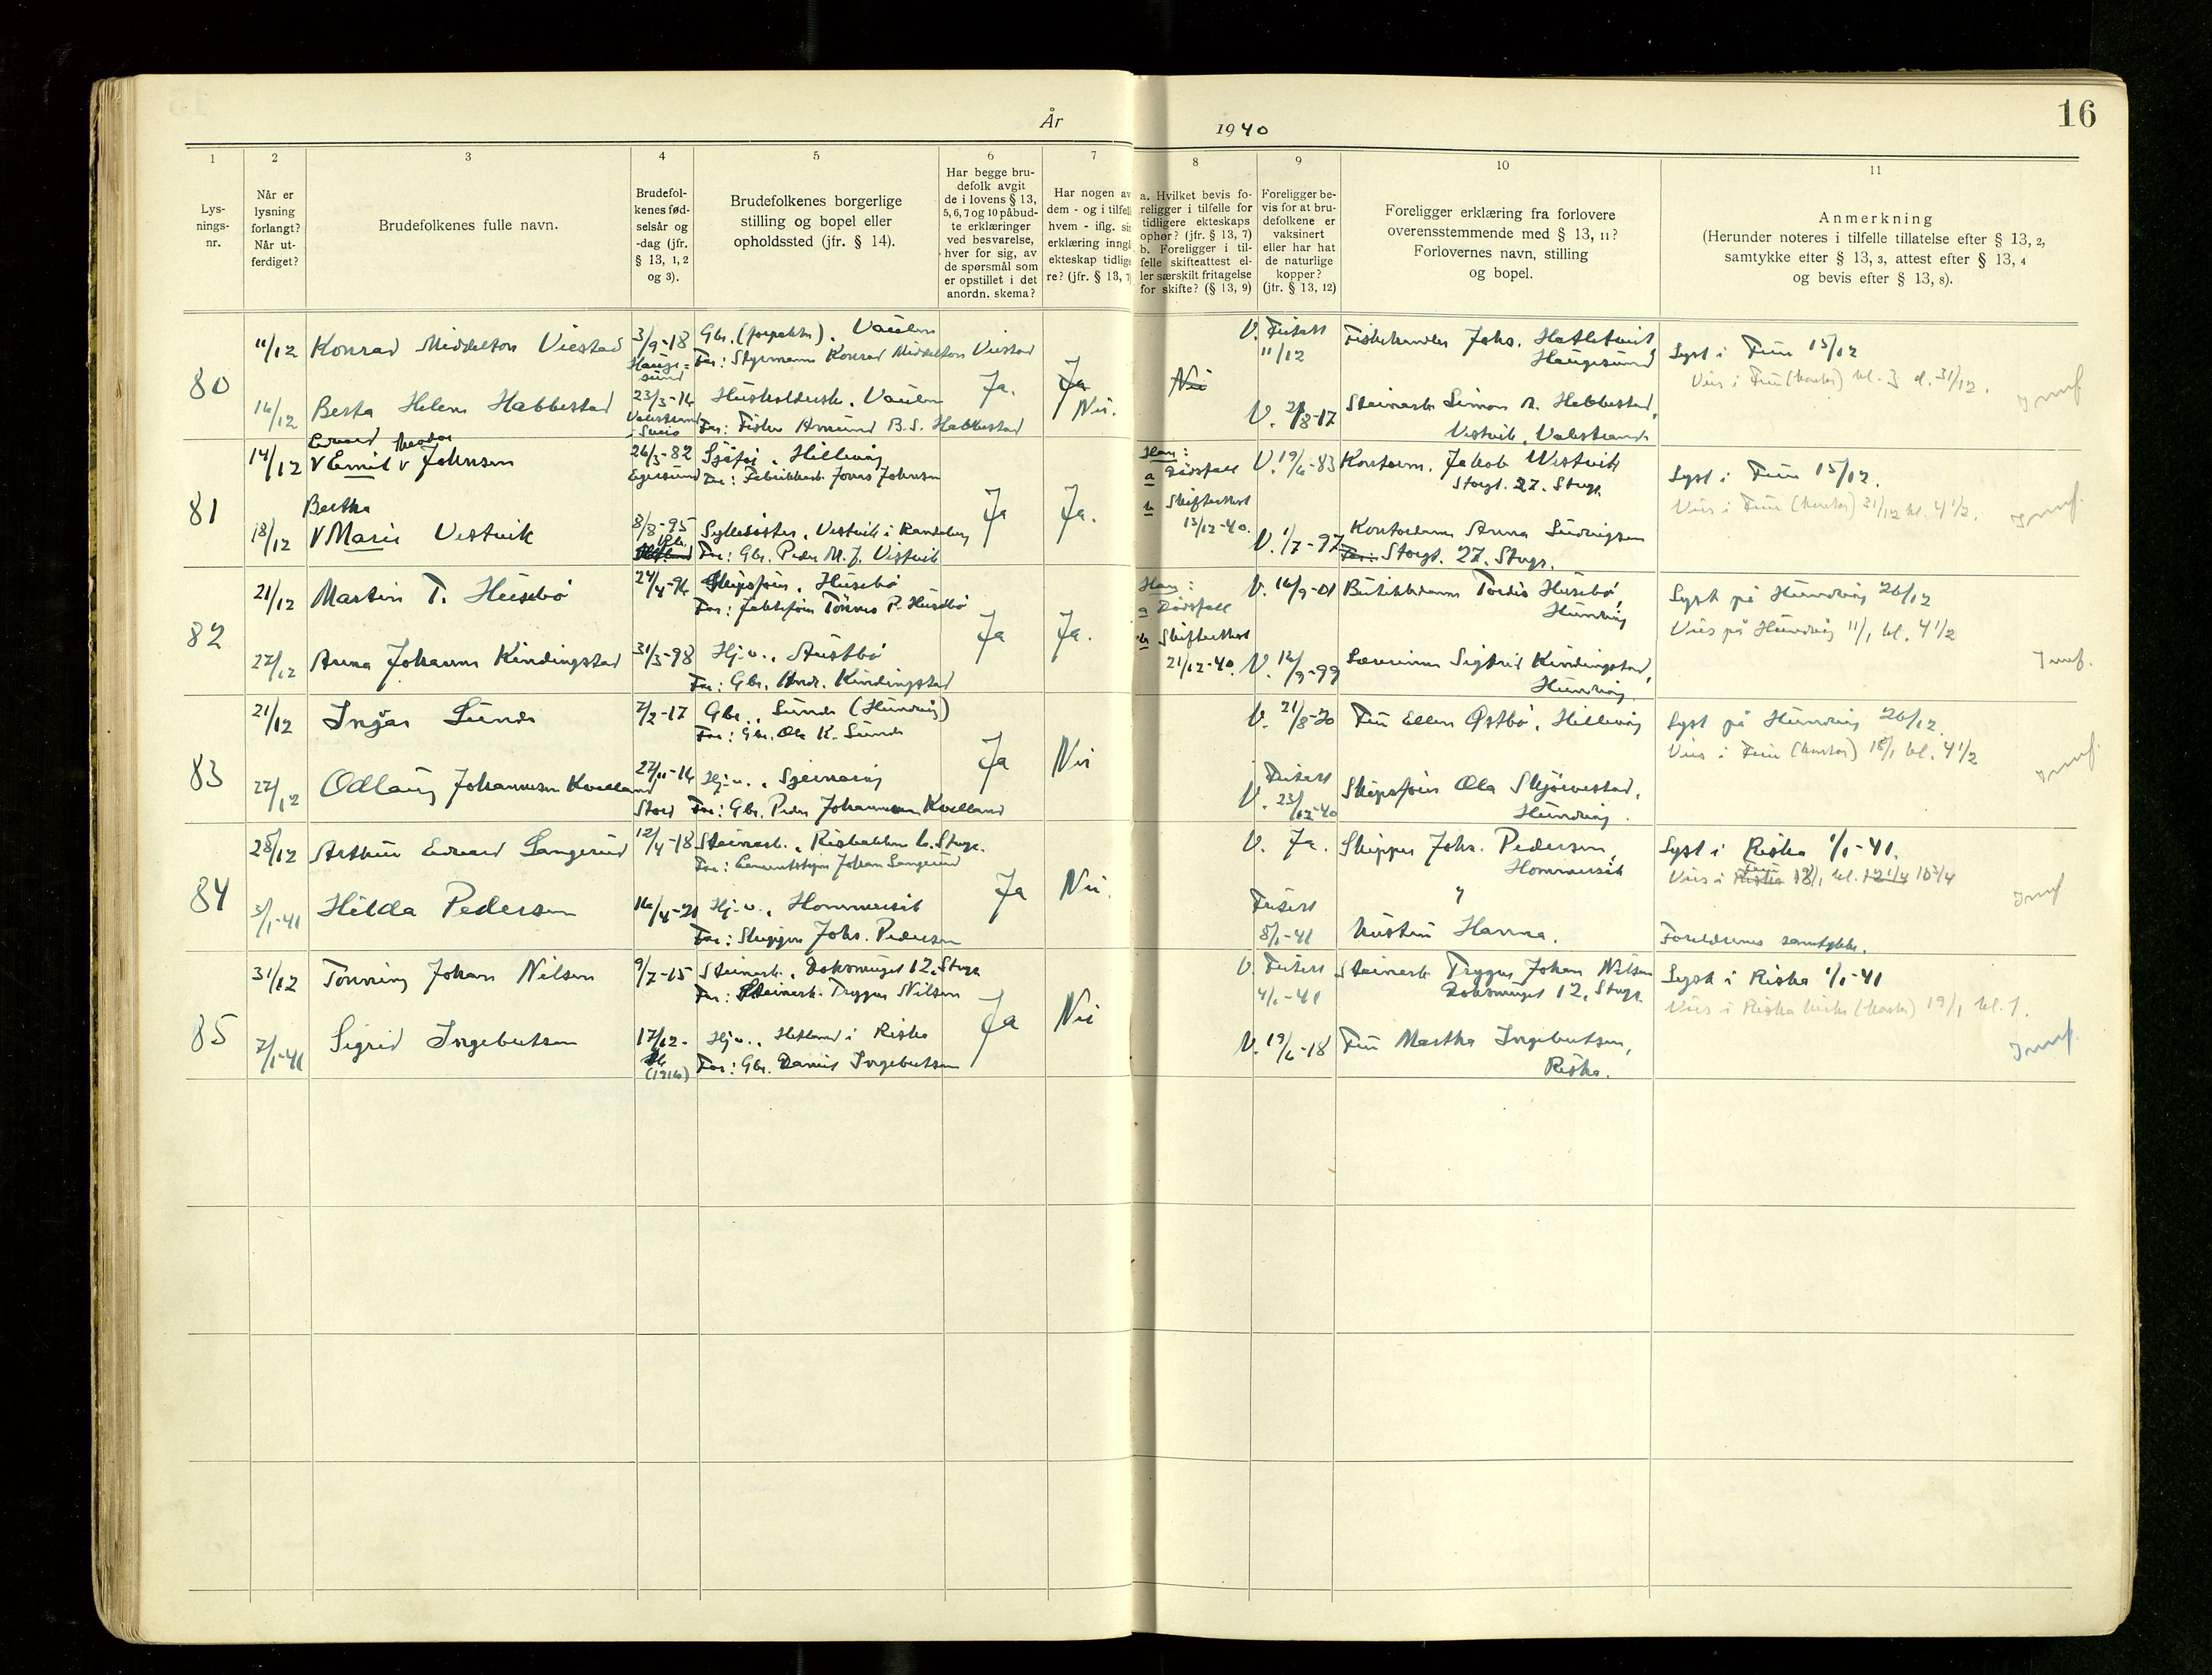 År 1940
16
1
2
3
4
5
6
7
8
9
10
11
Lys-
nings-
nr.
Når er
lysning
forlangt?
Når ut-
ferdiget?
Brudefolkenes fulle navn.
Brudefol-
kenes fød-
selsår og
-dag (jfr.
§ 13, 1, 2
og 3).
Brudefolkenes borgerlige
stilling og bopel eller
opholdssted (jfr. § 14).
Har begge bru-
defolk avgit
de i lovens § 13,
5, 6, 7 og 10 påbud-
te erklæringer
ved besvarelse,
hver for sig, av
de spørsmål som
er opstillet i det
anordn. skema?
Har nogen av
dem - og i tilfell
hvem - iflg. sin
erklæring inngå
ekteskap tidlige
re? (jfr. § 13, 7)
a. Hvilket bevis fo-
religger i tilfelle for
tidligere ekteskaps
ophør? (jfr. § 13, 7)
b. Foreligger i til-
felle skifteattest el-
ler særskilt fritagelse
for skifte? (§ 13, 9)
Foreligger be-
vis for at bru-
defolkene er
vaksinert
eller har hat
de naturlige
kopper?
(jfr. § 13, 12)
Foreligger erklæring fra forlovere
overensstemmende med § 13, 11?
Forlovernes navn, stilling
og bopel.
Anmerkning
(Herunder noteres i tilfelle tillatelse efter § 13, 2,
samtykke efter § 13, 3, attest efter § 13, 4
og bevis efter § 13, 8).
80
11/12
Konrad Middelton Viestad
3/9-18
Hauge-
sund
Gbr. (forpakter), Vaulen
Far: Styrmann Konrad Middelton Viestad
Ja.
Ja
Nei.
Nei
V. Friserr
11/12
Fiskehandler Johs. Hatletveit
Haugesund
Lyst i Frue 15/12
Vies i Frue (kontor) kl. 3 d. 31/12.
Innf
16/12
Berta Helene Habbestad
23/3-14
Husholderske, Vaulen
Far: Fisker Amund B.S. Habbestad
V. 2/8-17
Steinarb. Simon A. Habbestad,
Vestvik, Valestrand
81
14/12
Edvard Theodor
V Emil V Johnsen
26/3-82
Egersund
Sjåfør, Hillevåg
Far: Fabrikkarb. Jonas Johnsen
Ja
Ja.
Han:
a Dødsfall
b Skifteattest
13/12-40.
V. 19/6-83
Kontorm. Jakob Westvik
Storgt. 27. Stvgr.
Lyst i Frue 15/12.
Vies i Frue (kontor) 21/12 kl. 4 1/2.
Innf.
18/12
Bertha
V Marie Vestvik
8/8-95
Sykesøster, Vestvik i Randaberg
Far: Gbr. Peder M. J. Vestvik
V. 1/7-97
Kontordame Anna Ludvigsen
Far: Storgt. 27. Stvgr.
82
21/12
Martin T. Husebø
24/4-94
Skipsfører, Husebø
Far: Jaktefører Tønnes P. Husebø
Ja
Ja.
Han:
a Dødsfall
b Skifteattest
21/12-40.
V. 16/9-01
Butikkdame Tordis Husebø,
Hundvåg
Lyst på Hundvåg 26/12
Vies på Hundvåg 11/1 kl. 4 1/2
Innf.
27/12
Anna Johanne Kindingstad
31/3-98
Hj.v., Austbø
Far: Gbr. Andr. Kindingstad
V. 16/9-99
Lærerinne Sigfrid Kindingstad,
Hundvåg.
83
21/12
Ingar Lunde
7/2-17
Gbr., Lunde (Hundvåg)
Far: Gbr. Ole K. Lunde
Ja
Nei
V. 21/8-20
Fru Ellen Østbø, Hillevåg
Lyst på Hundvåg 26/12.
Vies i Frue (kontor) 18/1 kl. 4 1/2
Innf.
27/12
Odlaug Johannesen Kvelland
27/11-14
Stord
Hj.v., Sjernarøy
Far: Gbr. Peder Johannesen Kvelland
V. Friserr
23/12-40
Skipsfører Ola Skjørestad,
Hundvåg.
84
28/12
Arthur Edvard Langerud
12/4-18
Steinarb., Risbakken 6. Stvgr.
Far: Cementstøper Johan Langerud
Ja
Nei.
V. Ja.
Skipper Johs. Pedersen,
Hommersåk
Lyst i Riska 1/1-41.
Vies i Riska Frue 18/1 kl. 12 1/4 10 3/4
Innf
3/1-41
Hilda Pedersen
16/4-21
Hj.v., Hommersåk
Far: Skipper Johs. Pedersen
Friserr
8/1-41
"
hustru Hanna.
Foreldrenes samtykke.
85
31/12
Tønning Johan Nilsen
9/7-15
Steinarb., Dokmuget 12, Stvgr
Far: Steinarb. Trygve Nilsen
Ja
Nei
V. Friserr
4/1-41
Steinarb. Trygve Johan Nilsen
Dokmuget 12, Stvgr.
Lyst i Riska 1/1-41
Vies i Riska kirke (kontor) 19/1 kl. 1.
Innf.
7/1-41
Sigrid Ingebretsen
17/12-
(1916)
Hj.v., Hetland i Riska
Far: Gbr. Daniel Ingebretsen
V. 19/6-18
Fru Martha Ingebretsen,
Riska.